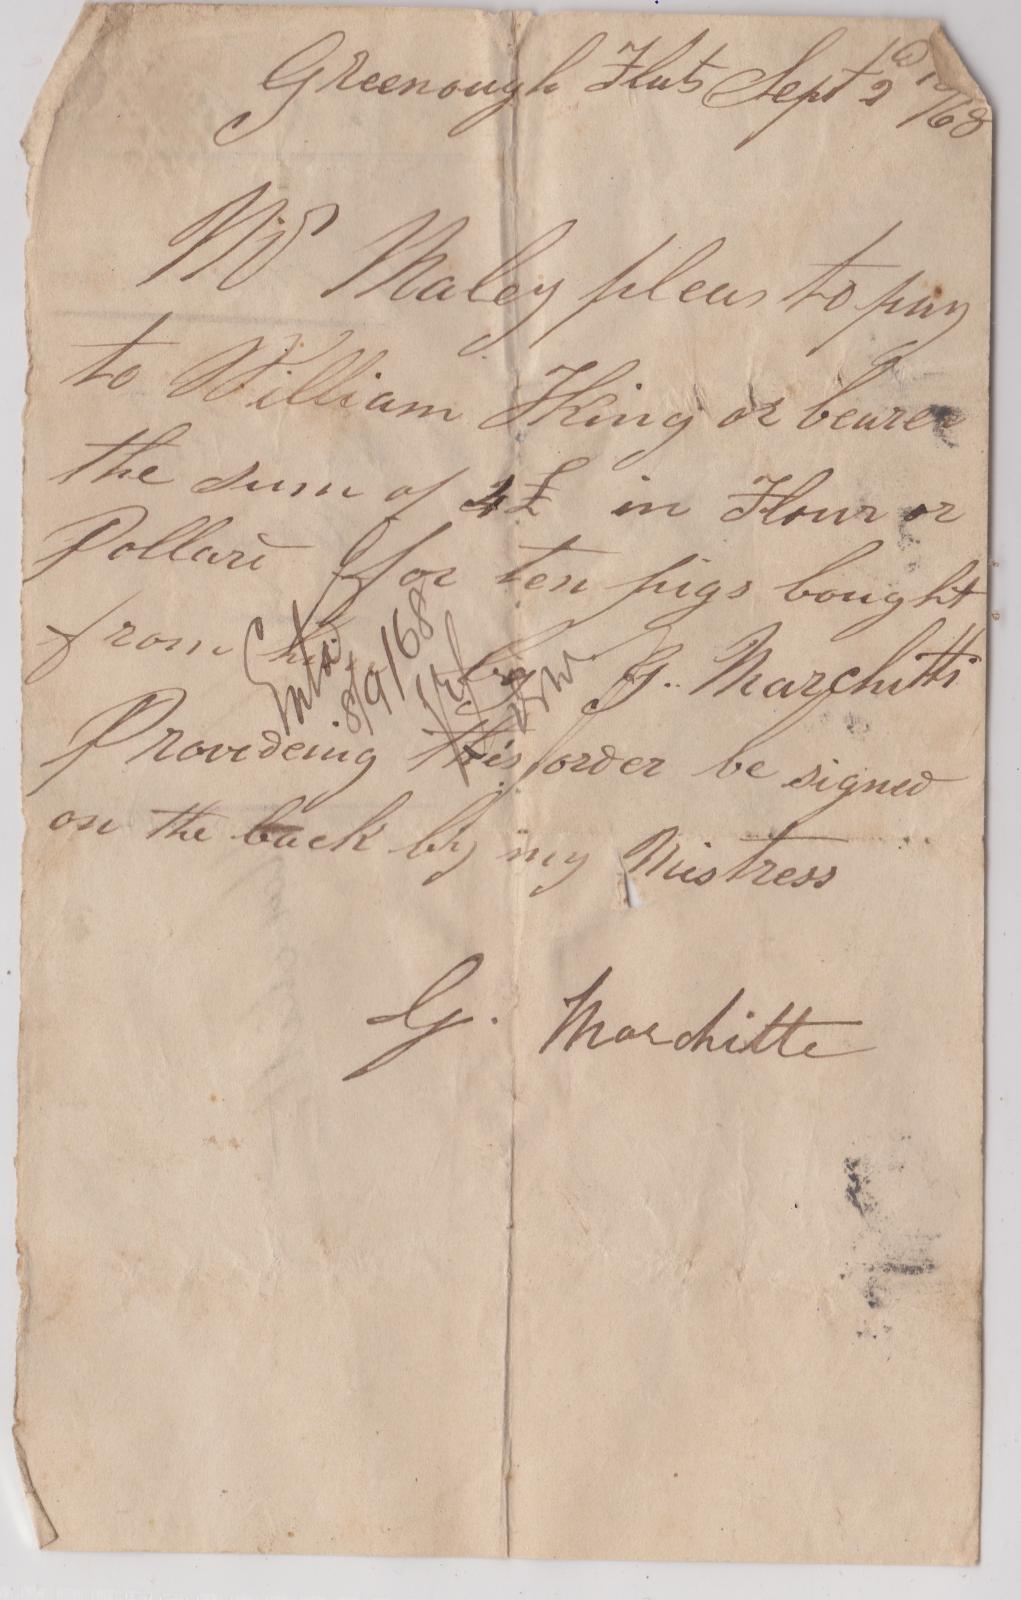 Greenough Flats Sept 2d 1868
Mr Maley pleas to pay
to William King or bearer
the sum of 4£ in Flour or
Pollard for ten pigs bought
from him by G. Marchitti
Entd
8/9/68
Provideing this order be signed
on the back by my Mistress
G. Marchitte